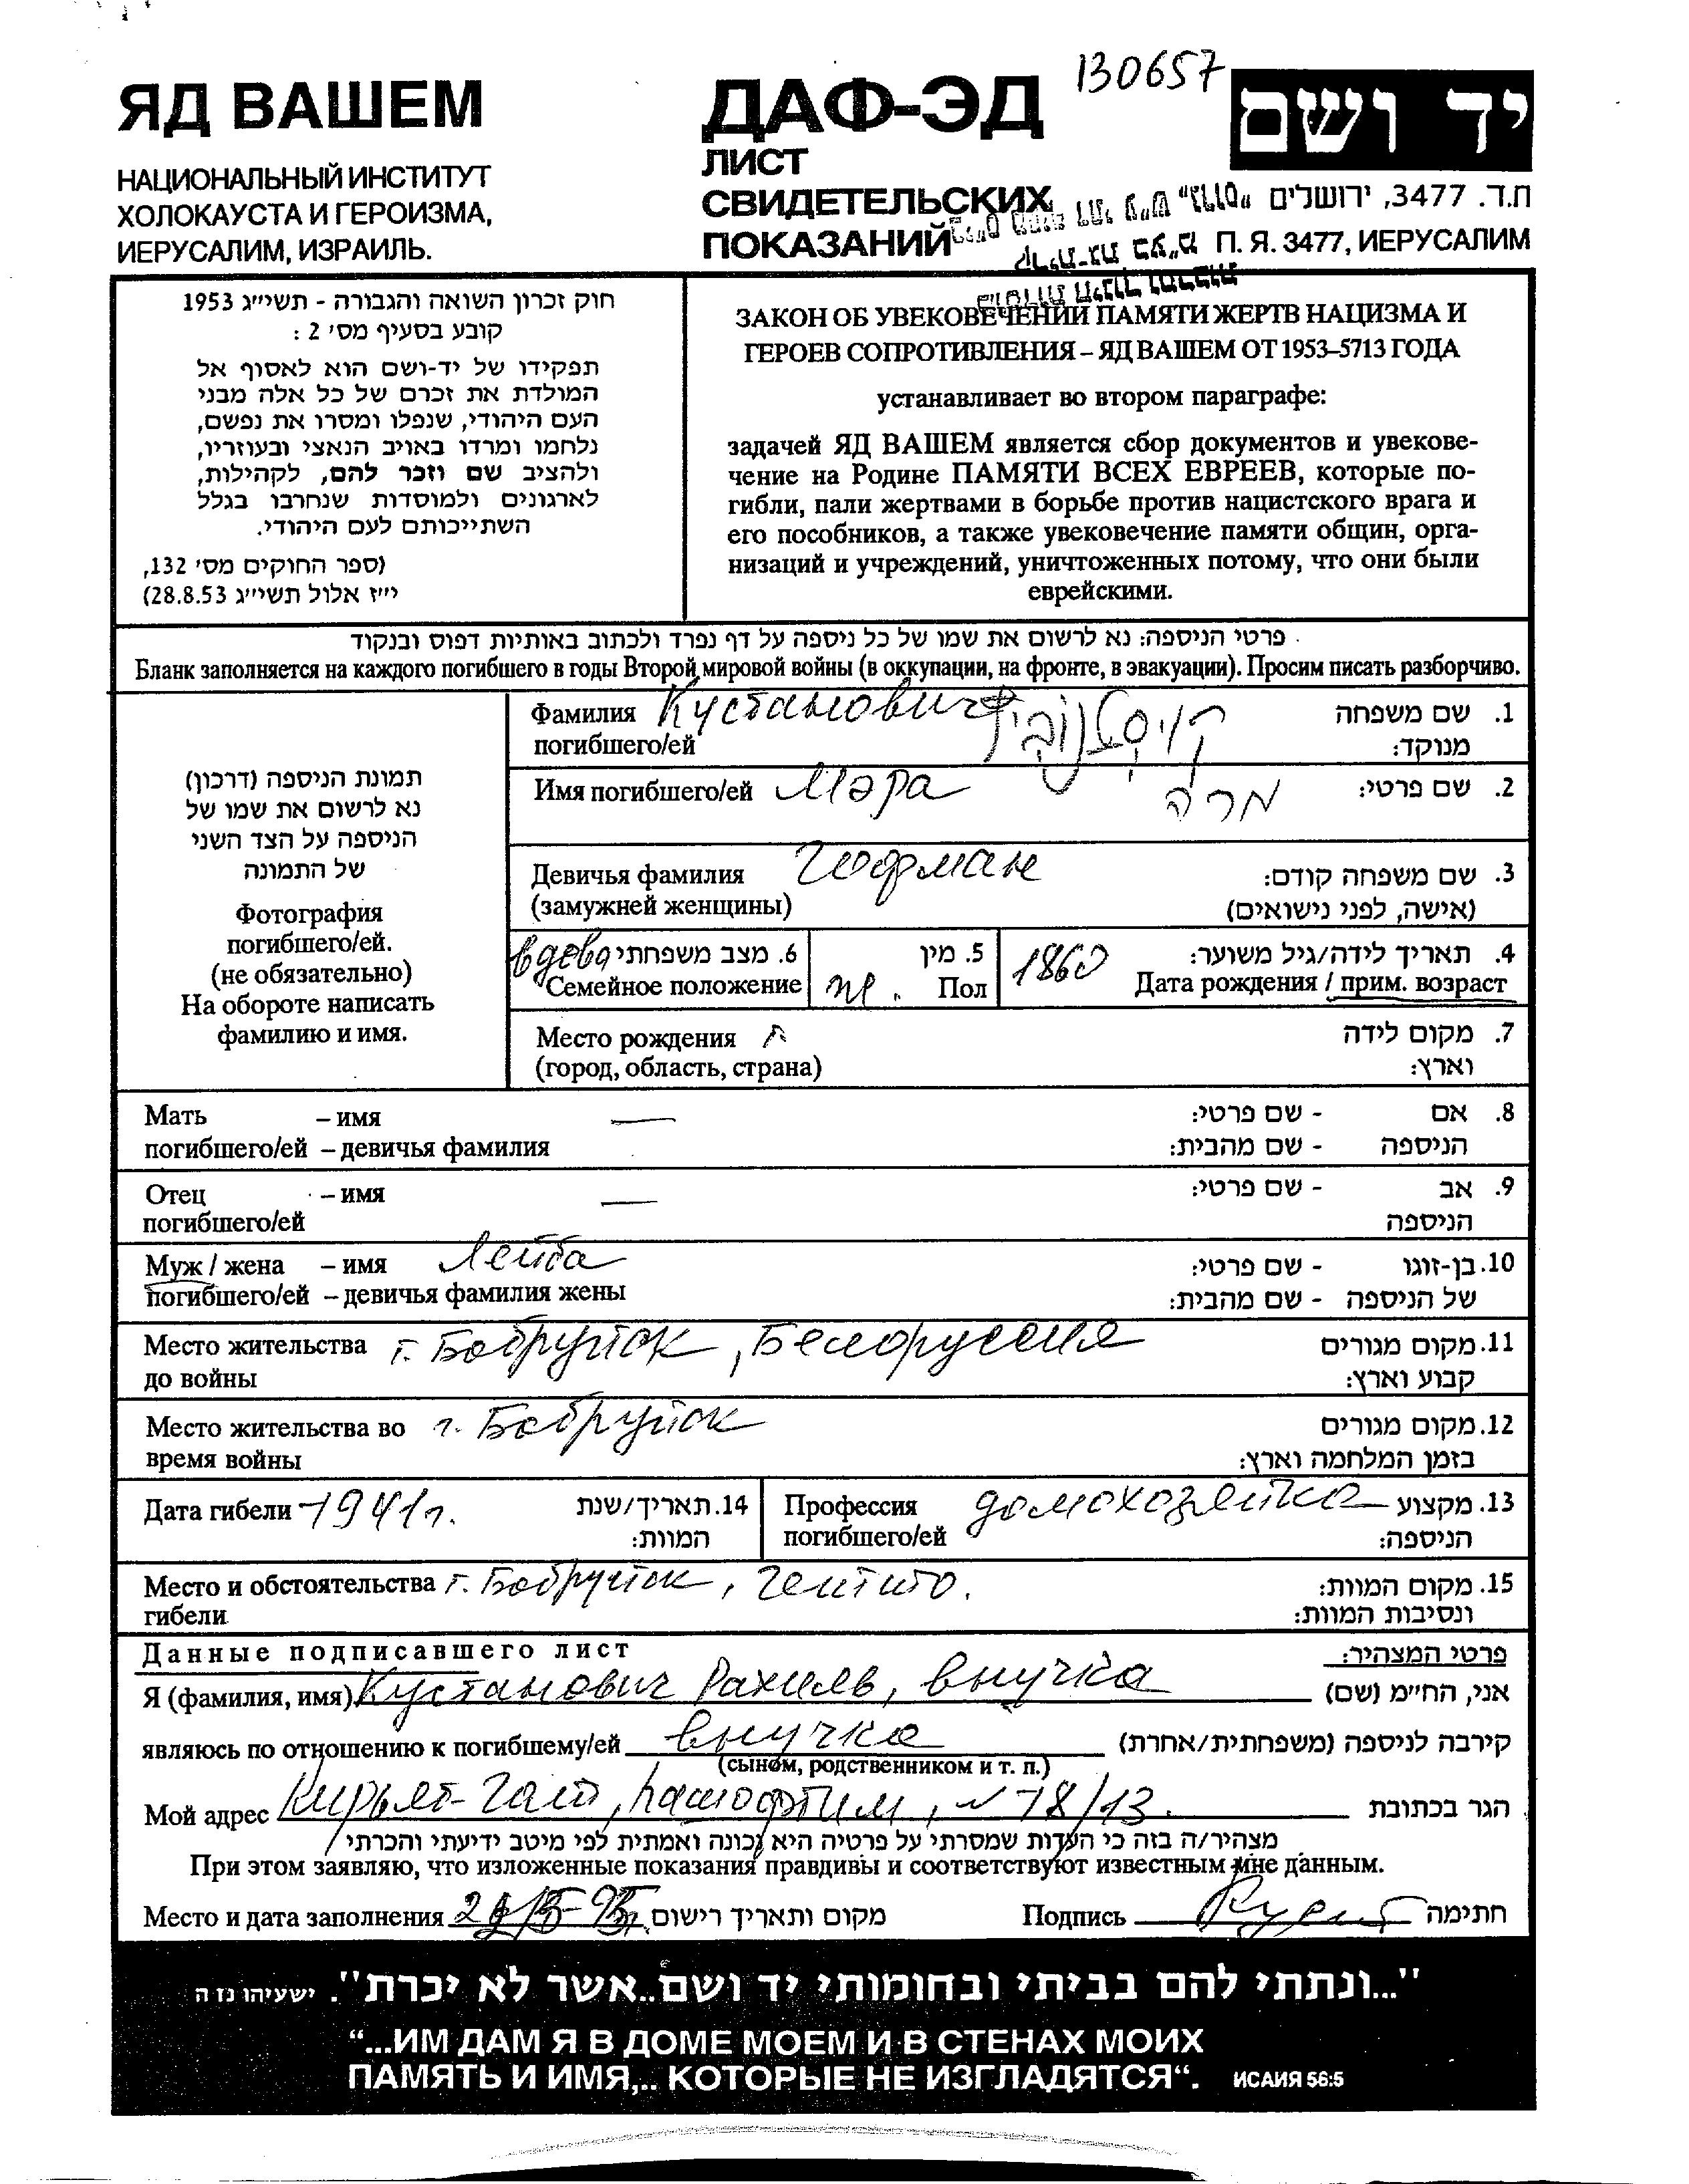 130657
ЯД ВАШЕМ
НАЦИОНАЛЬНЫЙ ИНСТИТУТ
ХОЛОКАУСТА И ГЕРОИЗМА,
ИЕРУСАЛИМ, ИЗРАИЛЬ.
ДАФ-ЭД
ЛИСТ
СВИДЕТЕЛЬСКИХ
ПОКАЗАНИЙ
יד ושם
ת.ד. 3477, ירושלים
П. Я. 3477, ИЕРУСАЛИМ
חוק זכרון השואה והגבורה - תשי״ג 1953
קובע בסעיף מס׳ 2 :
תפקידו של יד-ושם הוא לאסוף אל
המולדת את זכרם של כל אלה מבני
העם היהודי, שנפלו ומסרו את נפשם,
נלחמו ומרדו באויב הנאצי ובעוזריו,
ולהציב שם וזכר להם, לקהילות,
לארגונים ולמוסדות שנחרבו בגלל
השתייכותם לעם היהודי.
(ספר החוקים מס׳ 132,
י״ז אלול תשי״ג 28.8.53)
ЗАКОН ОБ УВЕКОВЕЧЕНИИ ПАМЯТИ ЖЕРТВ НАЦИЗМА И
ГЕРОЕВ СОПРОТИВЛЕНИЯ – ЯД ВАШЕМ ОТ 1953–5713 ГОДА
устанавливает во втором параграфе:
задачей ЯД ВАШЕМ является сбор документов и увекове-
чение на Родине ПАМЯТИ ВСЕХ ЕВРЕЕВ, которые по-
гибли, пали жертвами в борьбе против нацистского врага и
его пособников, а также увековечение памяти общин, орга-
низаций и учреждений, уничтоженных потому, что они были
еврейскими.
פרטי הניספה: נא לרשום את שמו של כל ניספה על דף נפרד ולכתוב באותיות דפוס ובנקוד
Бланк заполняется на каждого погибшего в годы Второй мировой войны (в оккупации, на фронте, в эвакуации). Просим писать разборчиво.
תמונת הניספה (דרכון)
נא לרשום את שמו של
הניספה על הצד השני
של התמונה
Фотография
погибшего/ей.
(не обязательно)
На обороте написать
фамилию и имя.
Фамилия Кустанович קויסטנוביץ 1. שם משפחה
погибшего/ей מנוקד:
Имя погибшего/ей Мэра מרה 2. שם פרטי:
Девичья фамилия Гофман 3. שם משפחה קודם:
(замужней женщины) (אישה, לפני נישואים)
вдова 6. מצב משפחתי
Семейное положение
5. מין
ж. Пол
1860 4. תאריך לידה/גיל משוער:
Дата рождения / прим. возраст
Место рождения 7. מקום לידה
(город, область, страна) וארץ:
Мать – имя — 8. אם - שם פרטי:
погибшего/ей – девичья фамилия הניספה - שם מהבית:
Отец – имя — 9. אב - שם פרטי:
погибшего/ей הניספה
Муж / жена – имя Лейба 10. בן-זוגו - שם פרטי:
погибшего/ей – девичья фамилия жены של הניספה - שם מהבית:
Место жительства г. Бобруйск, Белоруссия 11. מקום מגורים
до войны קבוע וארץ:
Место жительства во г. Бобруйск 12. מקום מגורים
время войны בזמן המלחמה וארץ:
Дата гибели - 1941г. 14. תאריך/שנת
המוות:
Профессия домохозяйка 13. מקצוע
погибшего/ей הניספה:
Место и обстоятельства г. Бобруйск, гетто. 15. מקום המוות:
гибели ונסיבות המוות:
Данные подписавшего лист פרטי המצהיר:
Я (фамилия, имя) Кустанович Рахиль, внучка אני, הח״מ (שם)
являюсь по отношению к погибшему/ей внучка קירבה לניספה (משפחתית/אחרת)
(сыном, родственником и т. п.)
Мой адрес Кирьят-Гат, hашофтим, 78/13. הגר בכתובת
מצהיר/ה בזה כי העדות שמסרתי על פרטיה היא נכונה ואמתית לפי מיטב ידיעתי והכרתי
При этом заявляю, что изложенные показания правдивы и соответствуют известным мне данным.
Место и дата заполнения מקום ותאריך רישום Подпись חתימה
"...ונתתי להם בביתי ובחומותי יד ושם..אשר לא יכרת". ישעיהו נז ה
“...ИМ ДАМ Я В ДОМЕ МОЕМ И В СТЕНАХ МОИХ
ПАМЯТЬ И ИМЯ,.. КОТОРЫЕ НЕ ИЗГЛАДЯТСЯ“. ИСАИЯ 56:5